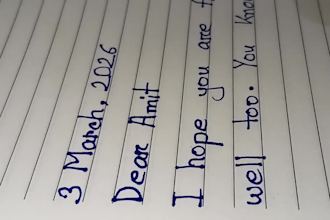 3 March, 2026
Dear Amit
I hope you are
well too. You